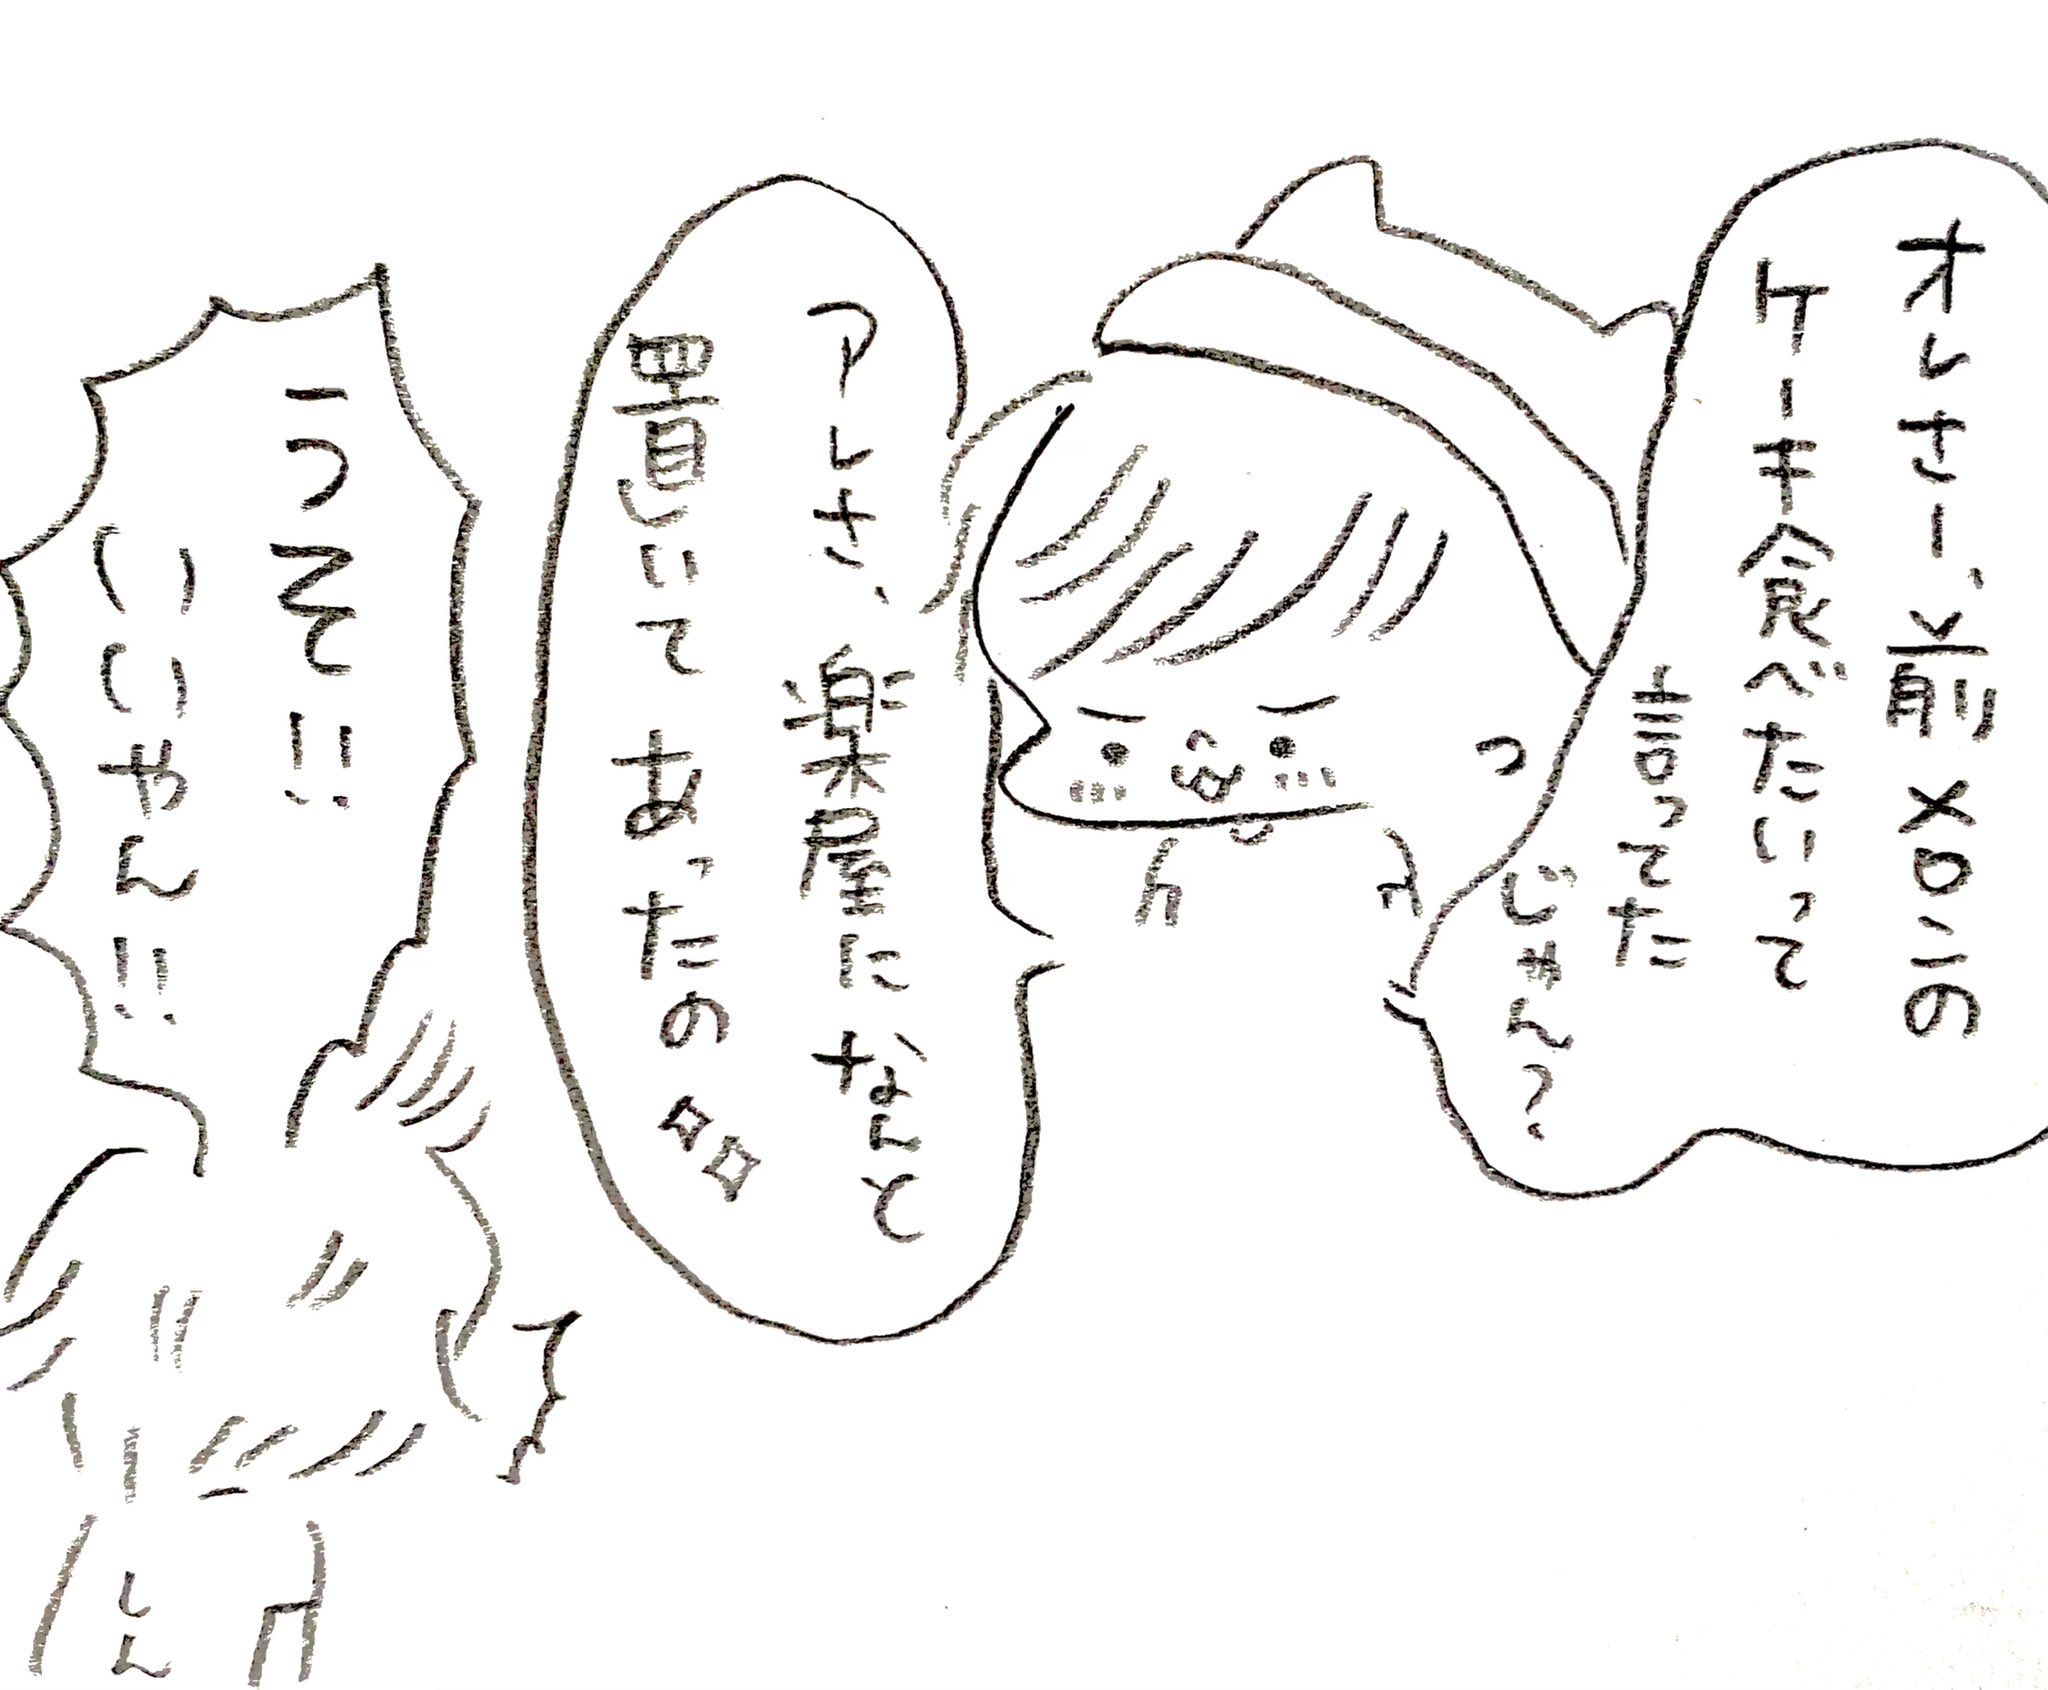 オレさー、前メロンの
ケーキ食べたいって
言ってた
じゃん？
アレさ、楽屋になんと
置いてあったの
えっ
いいやん!!!
しん